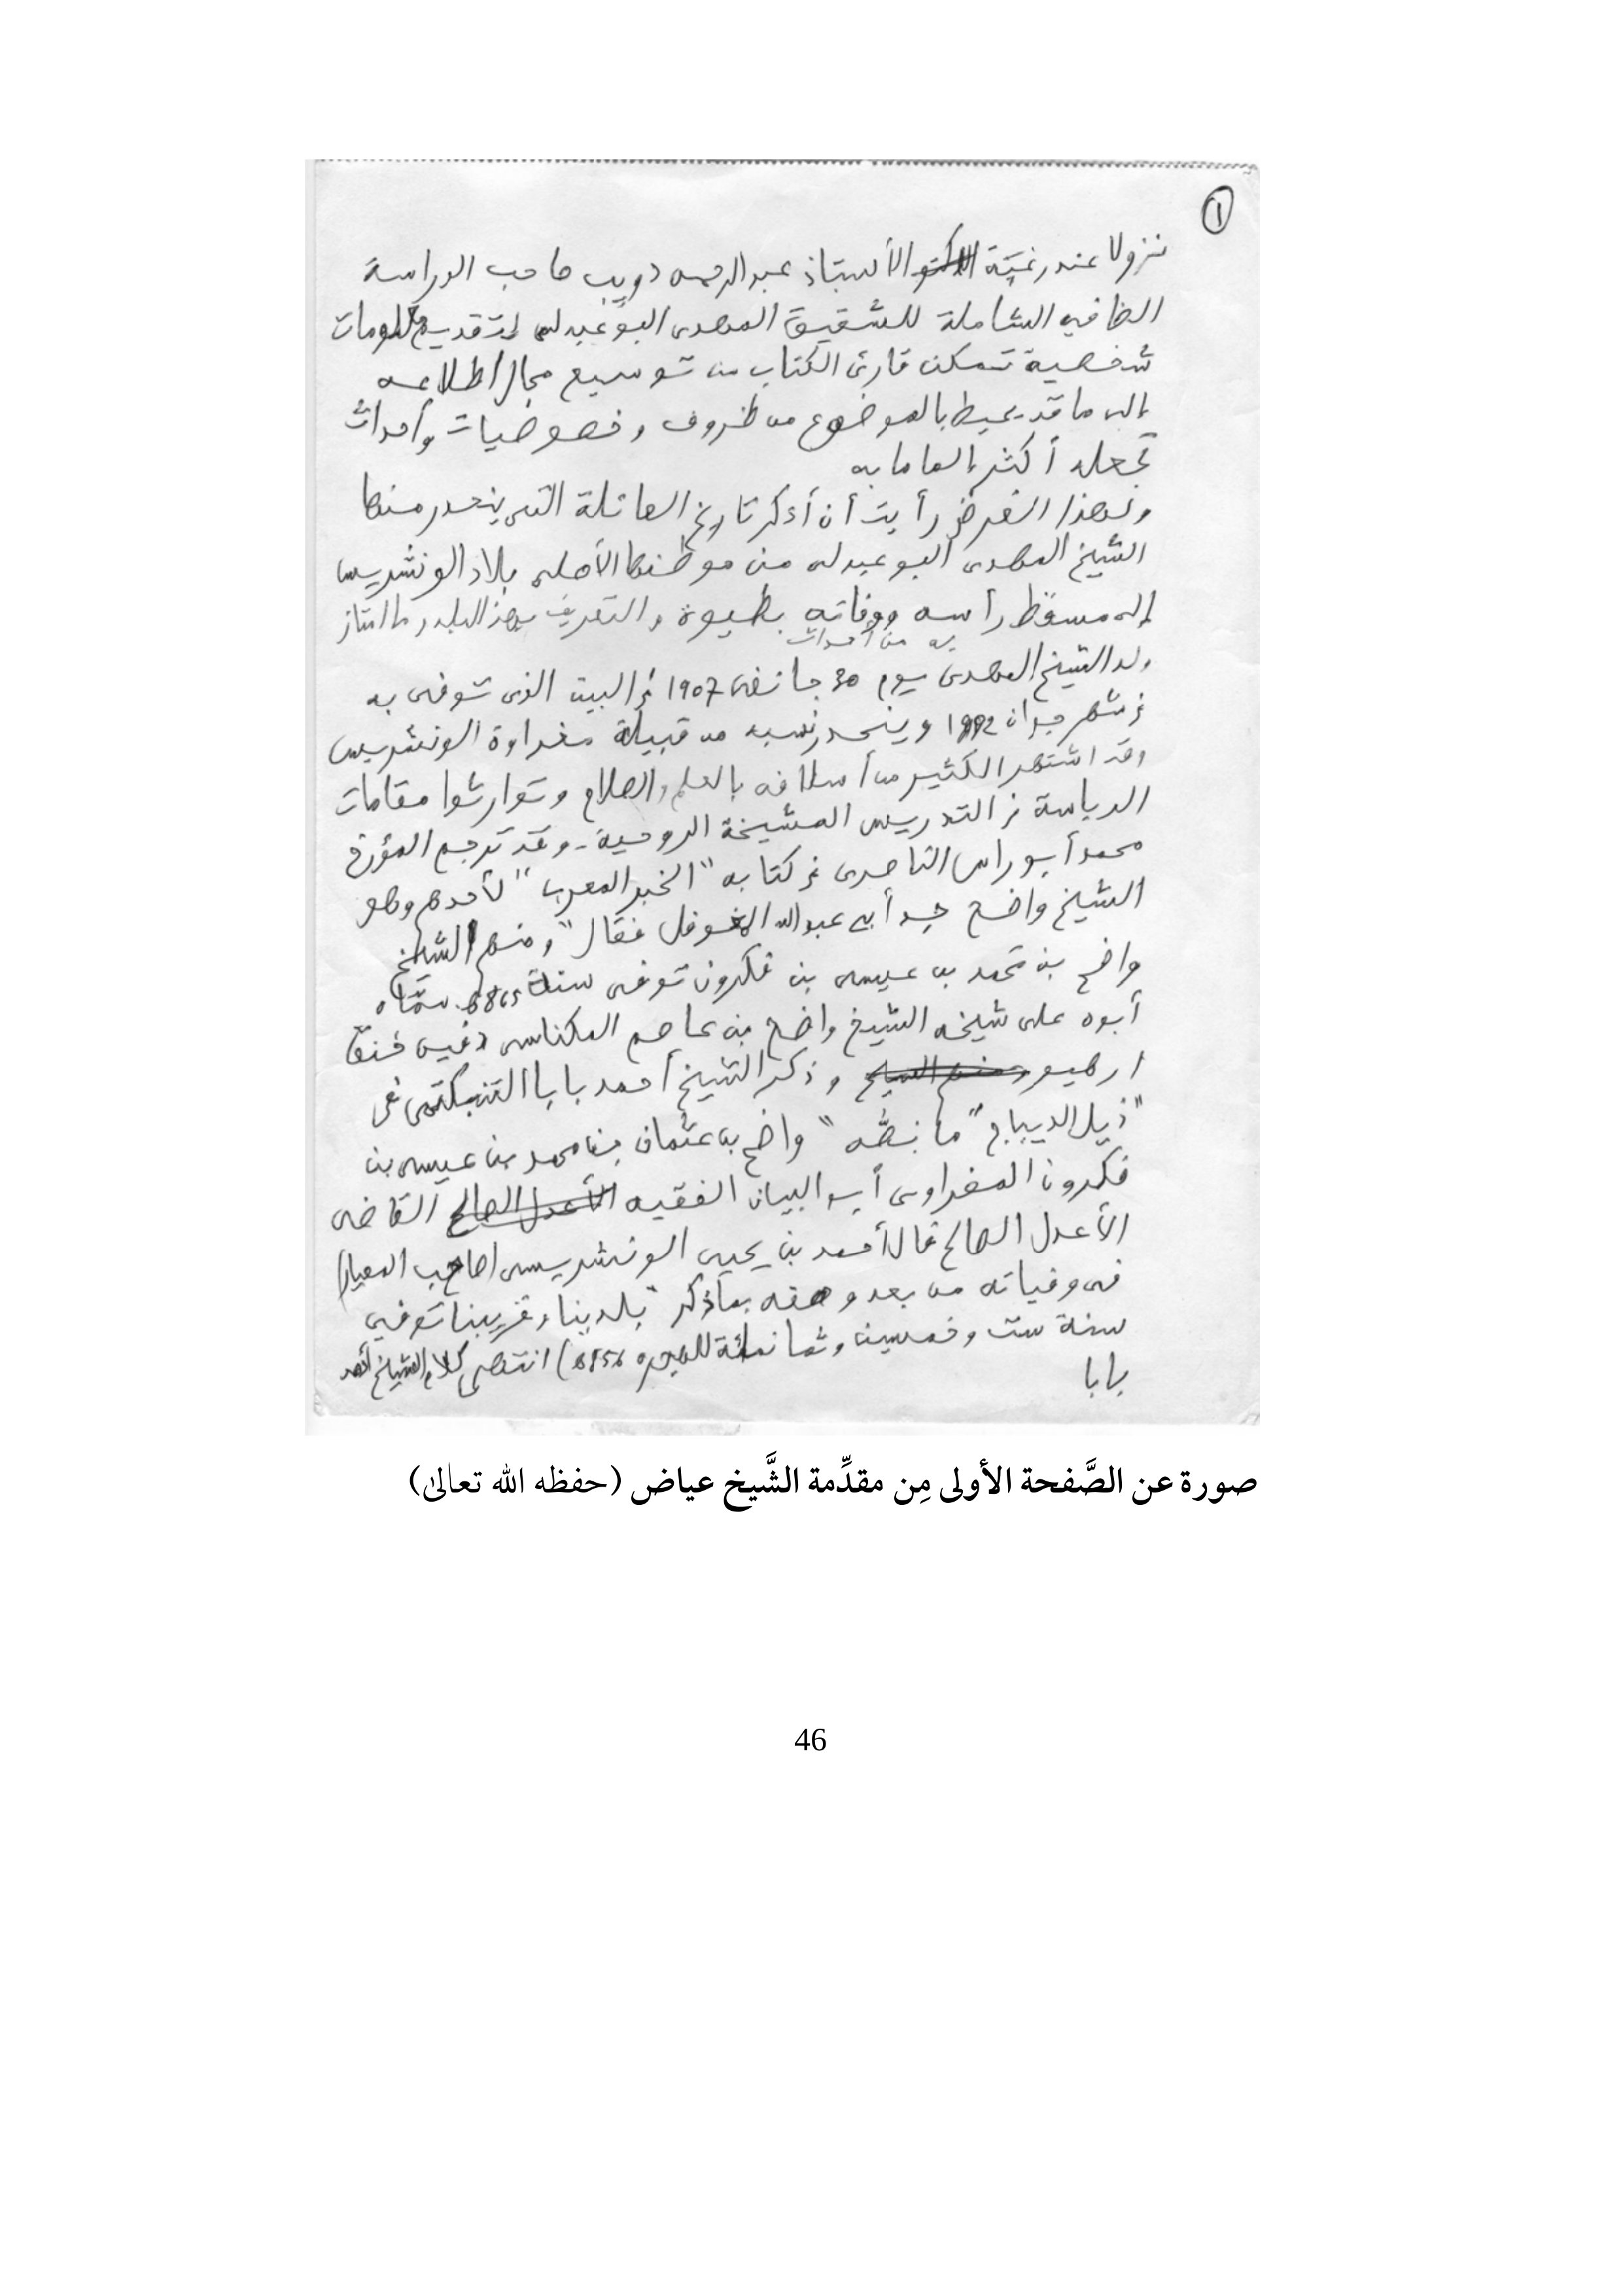 ١
نزولا عند رغبة الأستاذ عبد الرحمن دويب صاحب الدراسة
الضافية الشاملة للشقيق المهدي البوعبدلي لتقديم معلومات
شخصية تمكن قارئ الكتاب من توسيع مجال اطلاعه
إلى ما قد يحيط بالموضوع من ظروف وخصوصيات وأحداث
تجعله أكثر إلماما به
ولهذا الغرض رأيت أن أذكر تاريخ العائلة التي ينحدر منها
الشيخ المهدي البوعبدلي من موطنها الأصلي بلاد الونشريس
إلى مسقط رأسه ووفاته بطيوة والتعريف بهذا البلد وما امتاز
به من أحداث
ولد الشيخ المهدي يوم 30 جانفي 1907 في البيت الذي توفي به
في شهر جوان 1992 وينحدر نسبه من قبيلة مغراوة الونشريس
وقد اشتهر الكثير من أسلافه بالعلم والصلاح وتوارثوا مقامات
الرياسة في التدريس المشيخة الروحية - وقد ترجم المؤرخ
محمد أبوراس الناصري في كتابه "الخبر المعرب" لأحدهم وهو
الشيخ واضح جد أبي عبد الله المغوفل فقال "ومنهم الشيخ
واضح بن محمد بن عيسى بن فكرون توفي سنة سمّاه
أبوه على شيخه الشيخ واضح بن عاصم المكناسي دفين خنق
ارهيو وذكر الشيخ أحمد بابا التنبكتي في
"ذيل الديباج" ما نصّه "واضح بن عثمان بن محمد بن عيسى بن
فكرون المغراوي أبو البيان الفقيه الأعدل الصالح القاضي
الأعدل الصالح قال أحمد بن يحيى الونشريسي (صاحب المعيار)
في وفياته من بعد وصفه بما ذكر "بلدينا وقريبنا توفي
سنة ست وخمسين وثمانمائة للهجرة 856) انتهى كلام الشيخ أحمد
بابا
صورة عن الصَّفحة الأولى مِن مقدِّمة الشَّيخ عياض (حفظه الله تعالىٰ)
46